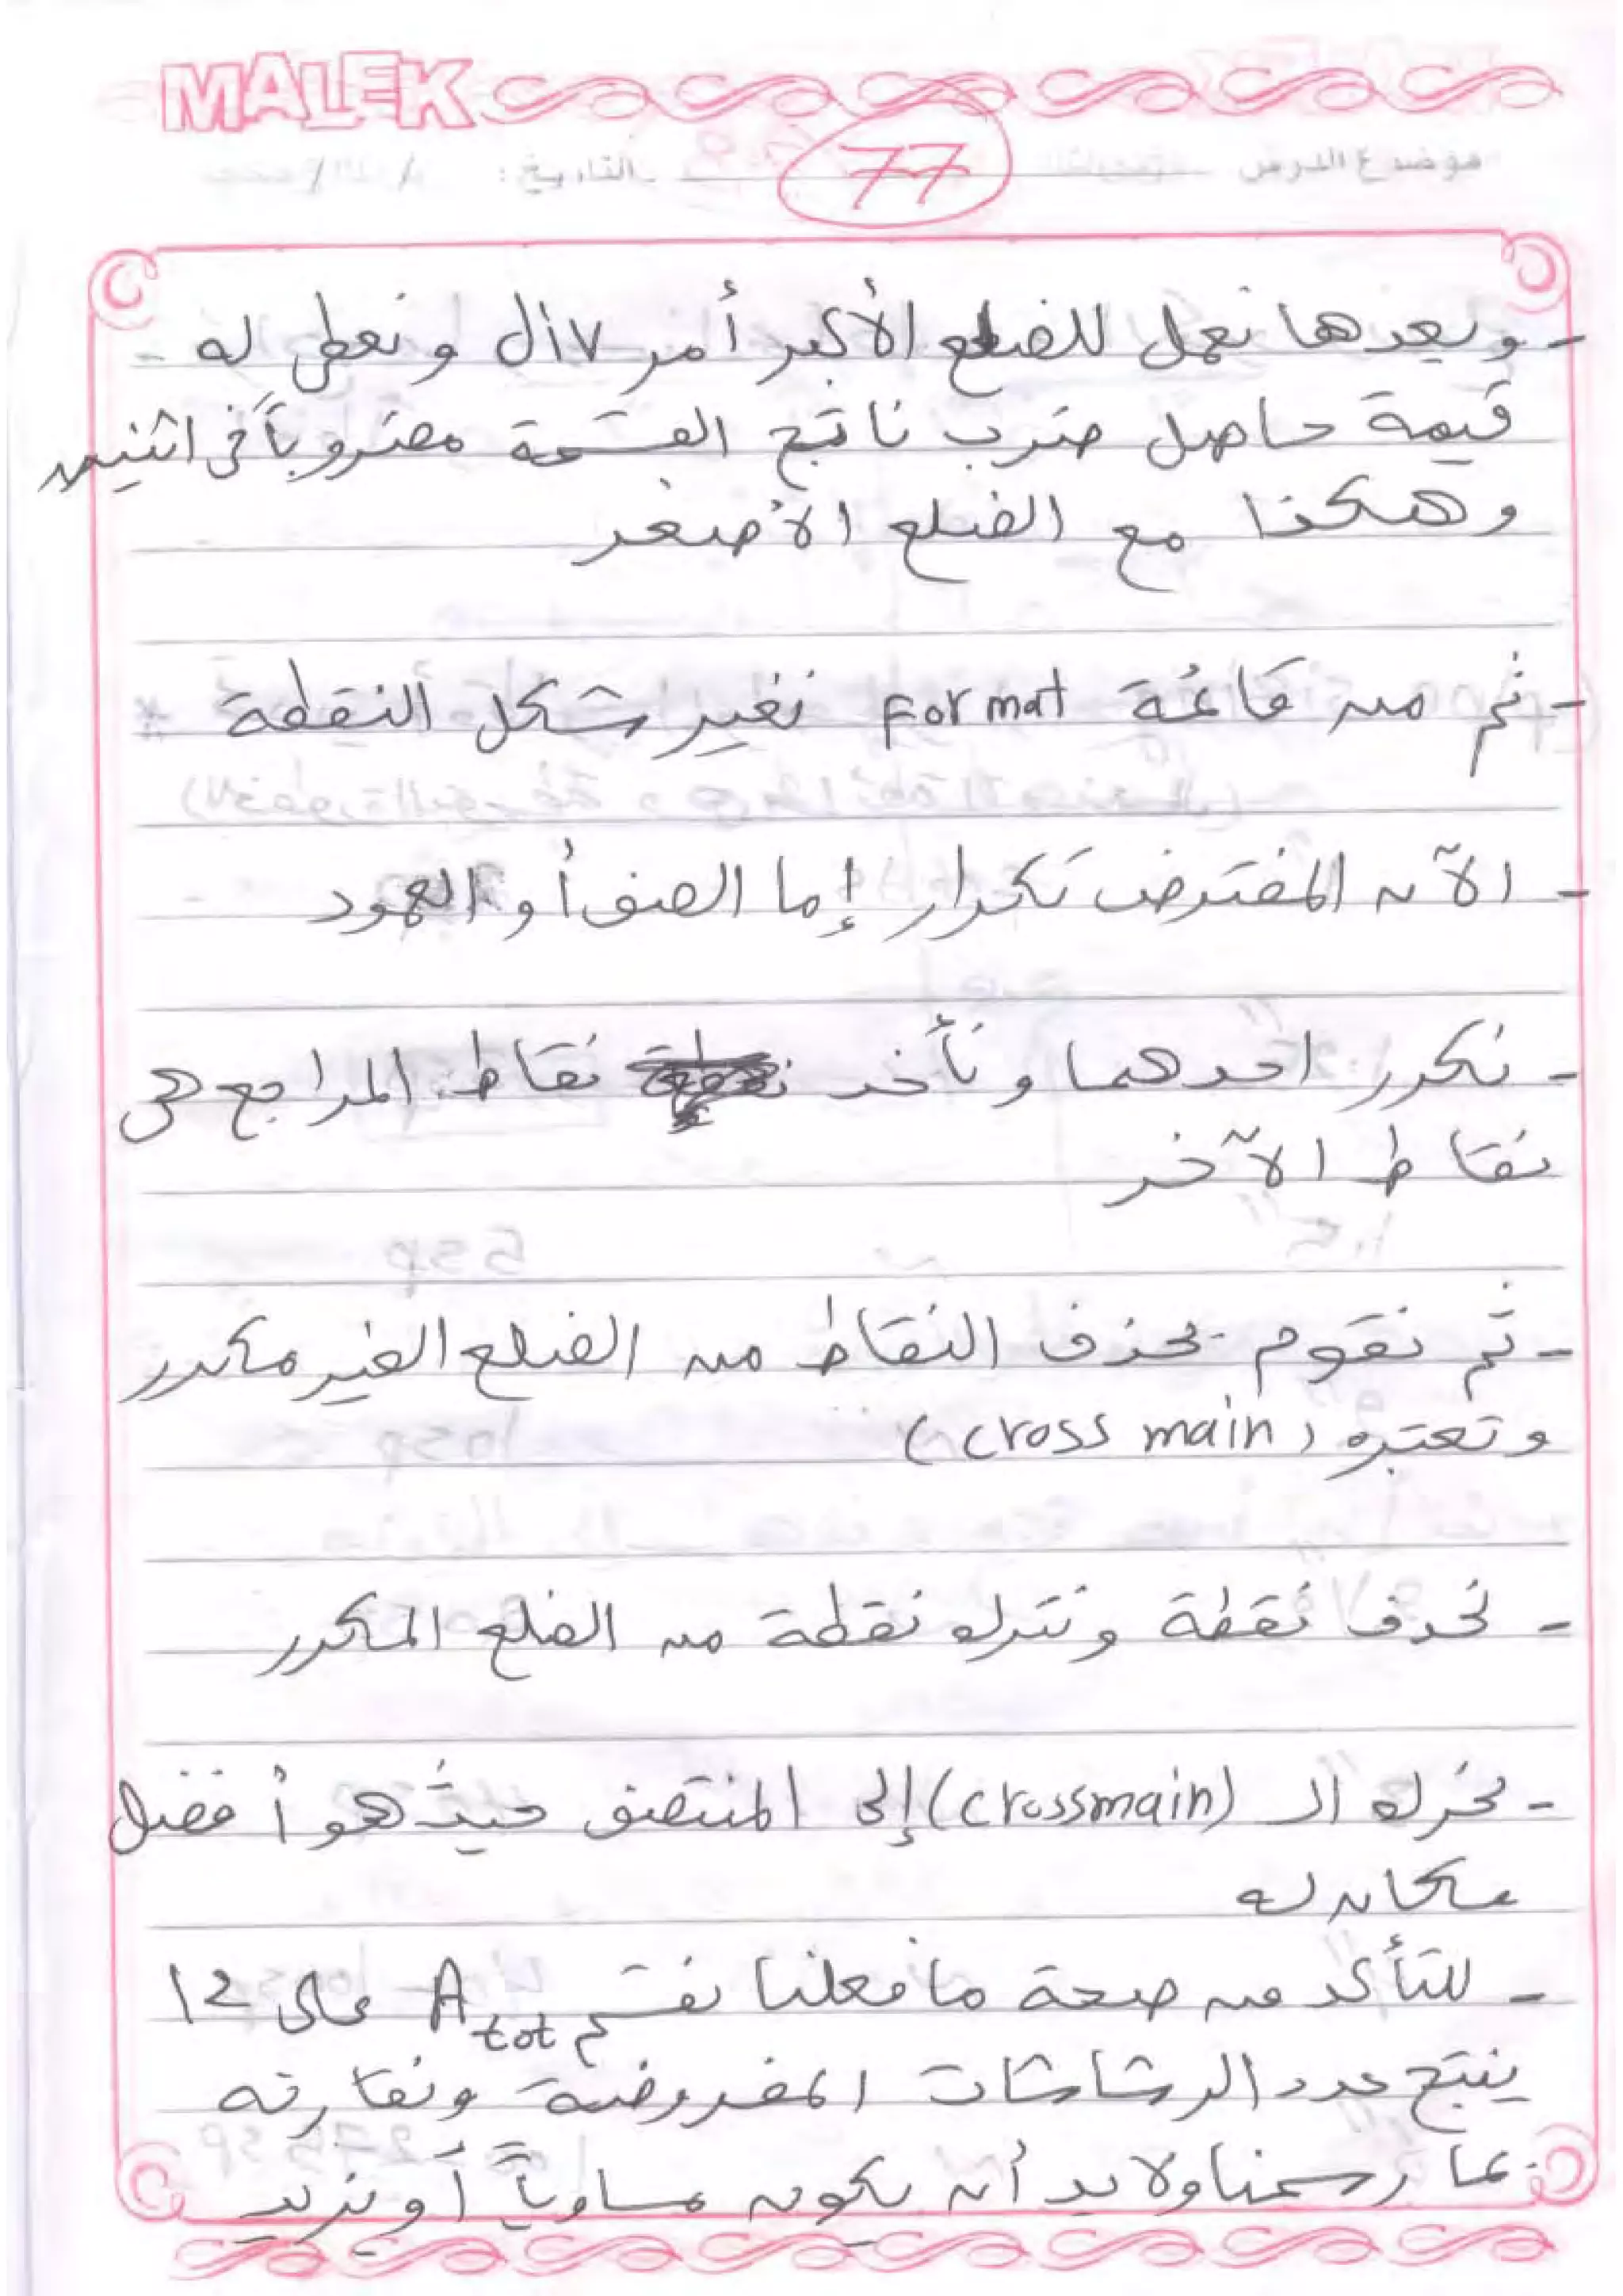 MALEK
موضوع الدرس التاريخ: / /
77
- وبعدها نعمل للضلع الأكبر أمر div ونعطي له
قيمة حاصل ضرب ناتج القسمة مضروباً في اثنين
وهكذا مع الضلع الأصغر
- ثم من قائمة Format نغير شكل النقطة
- الآن المفترض تكرار إما الصف أو العمود
- نكرر احدهما ونأخذ نقاط المراجع هي
نقاط الآخر
- ثم نقوم بحذف النقاط من الضلع الغير مكرر
وتعتبره (cross main)
- نحذف نقطة ونترك نقطة من الضلع المكرر
- نحرك الـ (crossmain) إلى المنتصف حيث هو أفضل
مكان له
- للتأكد من صحة ما فعلنا نقسم Atot على 12
ينتج عدد الرشاشات المفروضة ونقارنه
بما رسمنا ولابد أن يكون مساوياً أو يزيد